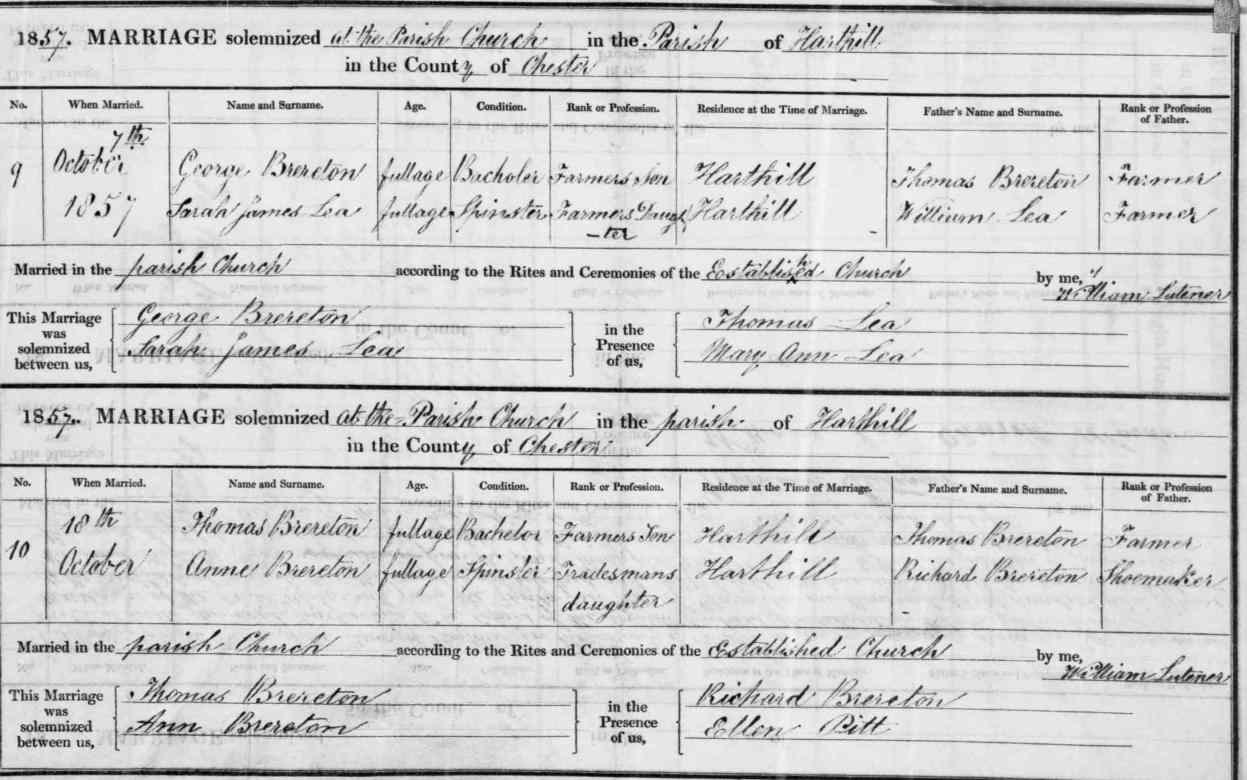 1857. MARRIAGE solemnized at the Parish Church in the Parish of Harthill
in the County of Chester
No. When Married. Name and Surname. Age. Condition. Rank or Profession. Residence at the Time of Marriage. Father's Name and Surname. Rank or Profession of Father.
7th
9 October George Brereton fullage Bacholer Farmers Son Harthill Thomas Brereton Farmer
1857 Sarah James Lea fullage Spinster Farmers Daugh Harthill William Lea Farmer
-ter
Married in the parish Church according to the Rites and Ceremonies of the Established Church by me, William Lutener
This Marriage was solemnized between us, George Brereton in the Presence of us, Thomas Lea
Sarah James Lea Mary Ann Lea
1857. MARRIAGE solemnized at the Parish Church in the parish of Harthill
in the County of Chester
No. When Married. Name and Surname. Age. Condition. Rank or Profession. Residence at the Time of Marriage. Father's Name and Surname. Rank or Profession of Father.
18th Thomas Brereton fullage Bachelor Farmers Son Harthill Thomas Brereton Farmer
10 October Anne Brereton fullage Spinster Tradesmans Harthill Richard Brereton Shoemaker
daughter
Married in the parish Church according to the Rites and Ceremonies of the Established Church by me, William Lutener
This Marriage was solemnized between us, Thomas Brereton in the Presence of us, Richard Brereton
Ann Brereton Ellen Pitt